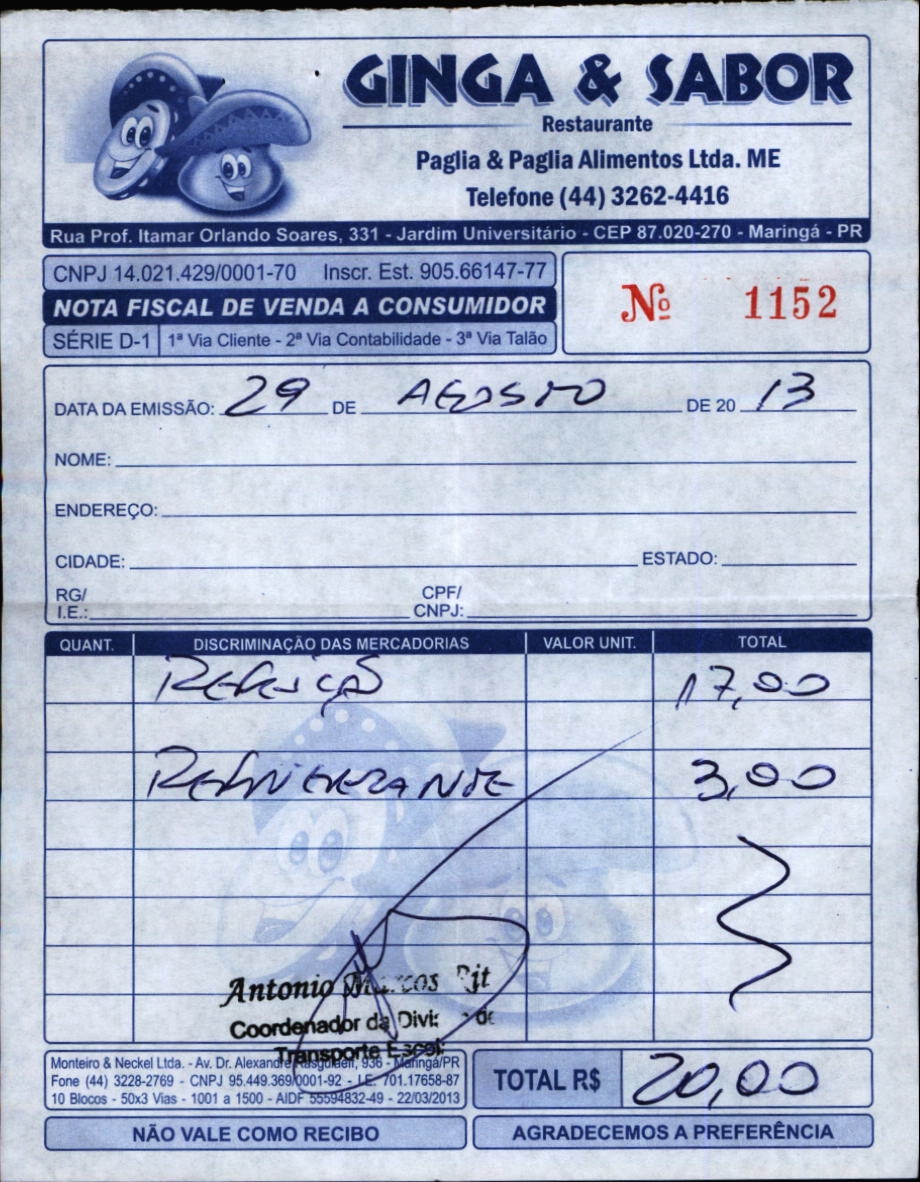 GINGA & SABOR
Restaurante
Paglia & Paglia Alimentos Ltda. ME
Telefone (44) 3262-4416
Rua Prof. Itamar Orlando Soares, 331 - Jardim Universitário - CEP 87.020-270 - Maringá - PR
CNPJ 14.021.429/0001-70 Inscr. Est. 905.66147-77
NOTA FISCAL DE VENDA A CONSUMIDOR
SÉRIE D-1 1ª Via Cliente - 2ª Via Contabilidade - 3ª Via Talão
Nº 1152
DATA DA EMISSÃO: 29 DE AGOSTO DE 20 13
NOME:
ENDEREÇO:
CIDADE: ESTADO:
RG/ I.E.: CPF/ CNPJ:
QUANT. DISCRIMINAÇÃO DAS MERCADORIAS VALOR UNIT. TOTAL
REFEIÇÃO 17,00
REFRIGERANTE 3,00
Antonio Marcos
Coordenador da de
Transporte
Monteiro & Neckel Ltda. - Av. Dr. Alexandre 936 - Maringá/PR
Fone (44) 3228-2769 - CNPJ 95.449.369/0001-92 - I.E. 701.17658-87
10 Blocos - 50x3 Vias - 1001 a 1500 - AIDF 55594832-49 - 22/03/2013
TOTAL R$ 20,00
NÃO VALE COMO RECIBO
AGRADECEMOS A PREFERÊNCIA